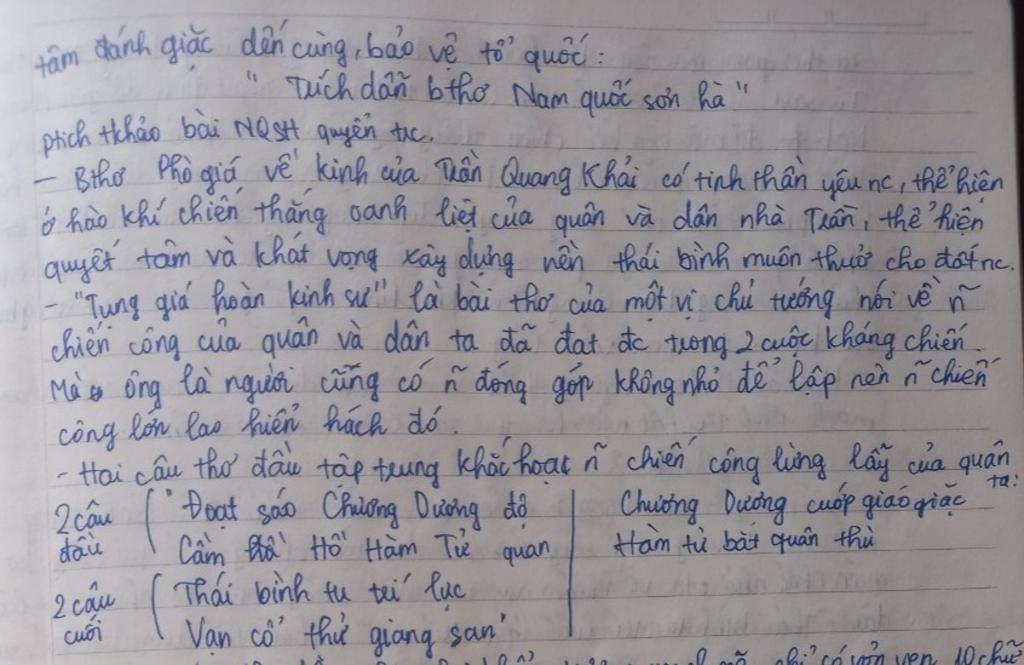 tâm đánh giặc đến cùng, bảo vệ tổ quốc:
" Trích dẫn bthơ Nam quốc sơn hà "
ptich tkhảo bài NQSH quyển trc.
- Bthơ Phò giá về kinh của Trần Quang Khải có tinh thần yêu nc, thể hiện
ở hào khí chiến thắng oanh liệt của quân và dân nhà Trần, thể hiện
quyết tâm và khát vọng xây dựng nền thái bình muôn thuở cho đất nc.
- "Tụng giá hoàn kinh sư" là bài thơ của một vị chủ tướng nói về ñ
chiến công của quân và dân ta đã đạt đc trong 2 cuộc kháng chiến.
Mà ông là người cũng có ñ đóng góp không nhỏ để lập nên ñ chiến
công lớn lao hiển hách đó.
- Hai câu thơ đầu tập trung khắc hoạ ñ chiến công lừng lẫy của quân
ta:
2 câu đầu ( " Đoạt sáo Chương Dương độ | Chương Dương cướp giáo giặc
Cầm Hồ Hàm Tử quan | Hàm tử bắt quân thù
2 câu cuối ( Thái bình tu trí lực
Vạn cổ thử giang san"
chỉ có vỏn vẹn 10 chữ